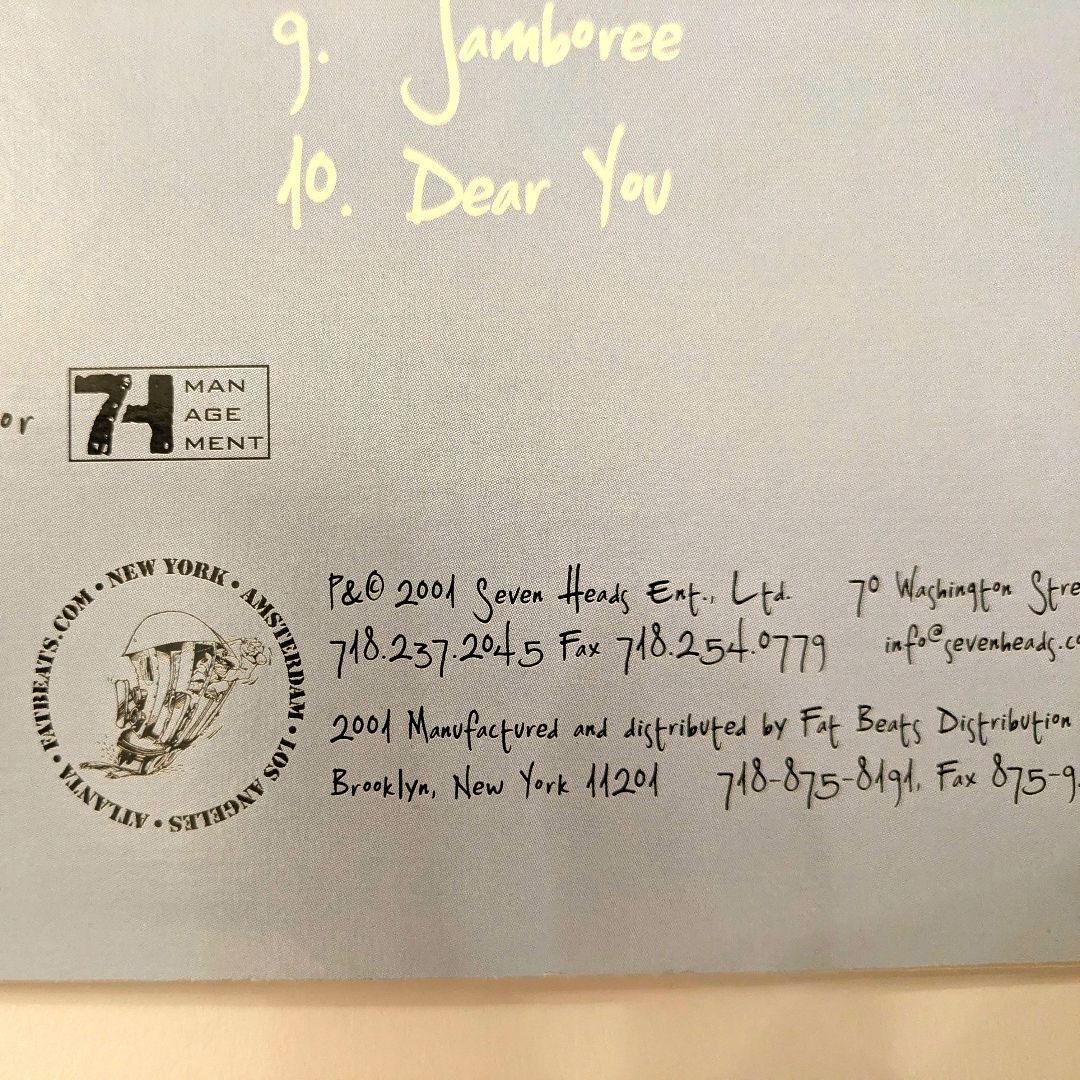 9. Jamboree
10. Dear You
or
7H MAN
AGE
MENT
FATBEATS.COM • NEW YORK • AMSTERDAM • LOS ANGELES • ATLANTA •
P&© 2001 Seven Heads Ent., Ltd. 70 Washington Stre
718.237.2045 Fax 718.254.0779 info@sevenheads.co
2001 Manufactured and distributed by Fat Beats Distribution
Brooklyn, New York 11201 718-875-8191, Fax 875-9